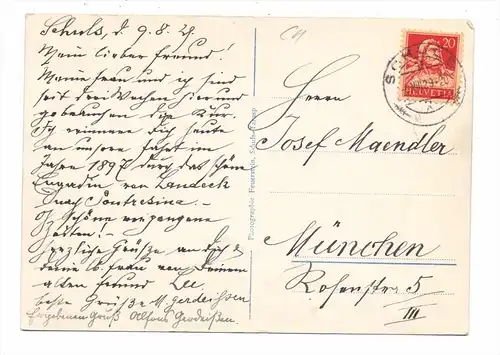 Schuls, d. 9. 8. 29.
Mein lieber Freund!
Meine Frau und ich sind
seit drei Wochen hier und
gebrauchen die Kur.
Ich erinnere dich heute
an unsere Fahrt im
Jahre 1897 durch das schöne
Engadin von Landeck
nach Pontresina. –
O schöne vergangene
Zeiten! –
Herzliche Grüße an dich &
deine lb. Frau von Deinem
alten Freund
beste Grüße M. Gerdeißen
Ergebenen Gruß Alfons Gerdeißen.
Photographie Feuerstein, Schuls-Tarasp
20
HELVETIA
Herrn
Josef Maendler
München
Rosenstr. 5
III